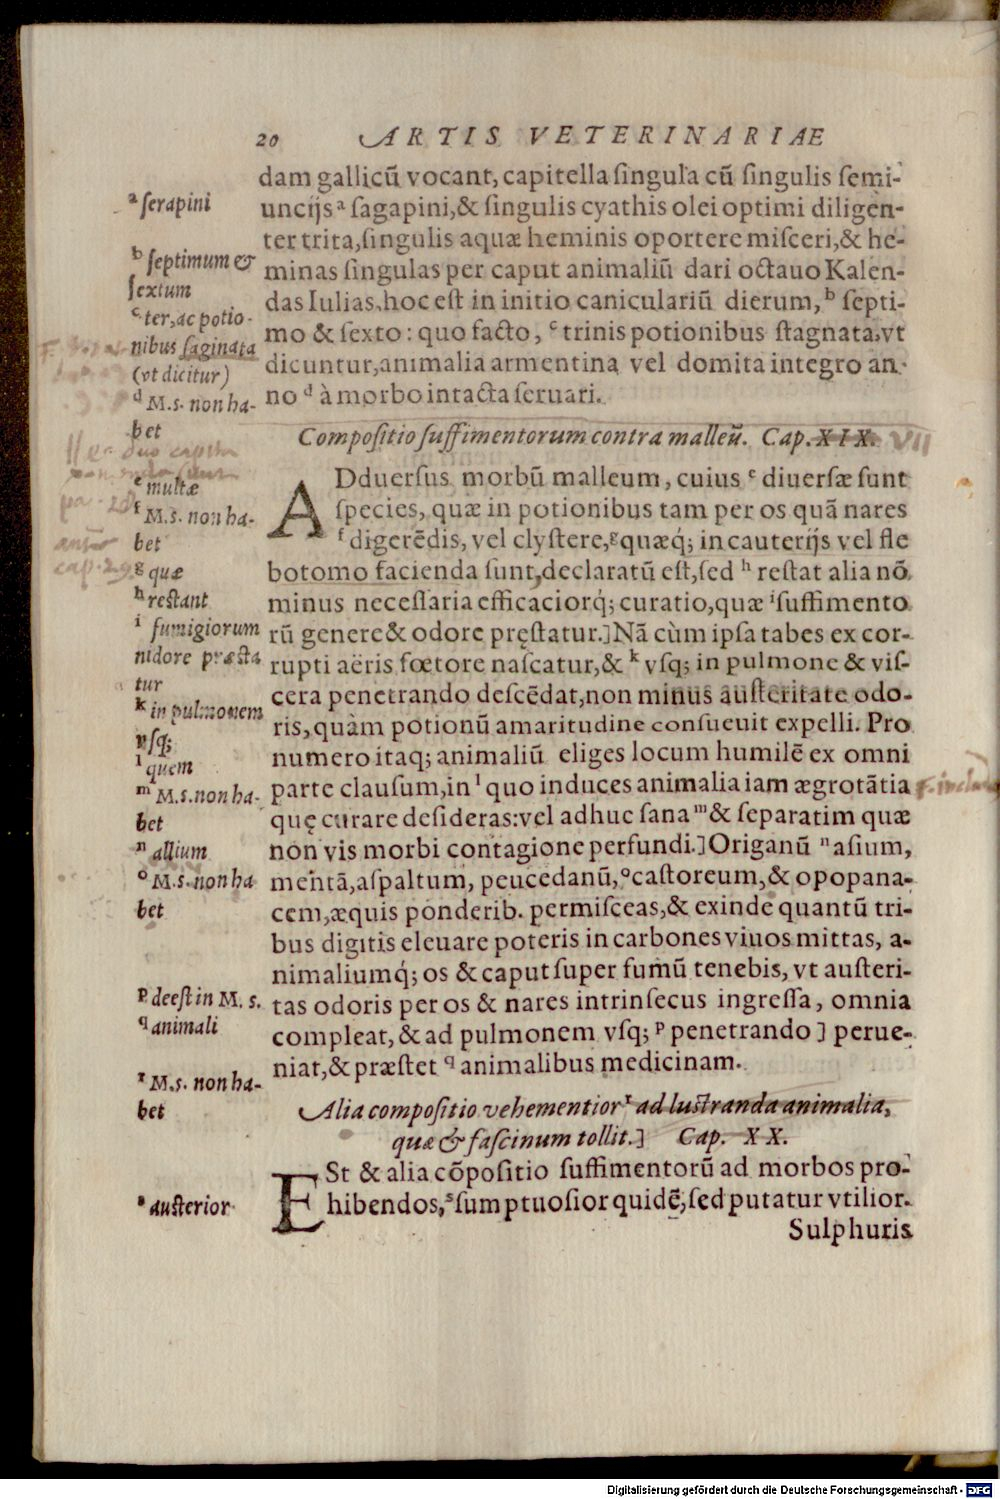 20 ARTIS VETERINARIAE
dam gallicũ vocant, capitella ſingula cũ ſingulis ſemi-
uncijs ᵃ ſagapini, & ſingulis cyathis olei optimi diligen-
ter trita, ſingulis aquæ heminis oportere miſceri, & he-
minas ſingulas per caput animaliũ dari octauo Kalen-
das Iulias, hoc eſt in initio caniculariũ dierum, ᵇ ſepti-
mo & ſexto: quo facto, ᶜ trinis potionibus ſtagnata, vt
dicuntur, animalia armentina vel domita integro an-
no ᵈ à morbo intacta ſeruari.
Compoſitio ſuffimentorum contra malleũ. Cap. XIX. VII
ADduerſus morbũ malleum, cuius ᵉ diuerſæ ſunt
ſpecies, quæ in potionibus tam per os quã nares
ᶠ digerẽdis, vel clyſtere, ᵍ quæq́; in cauterijs vel fle
botomo facienda ſunt, declaratũ eſt, ſed ʰ reſtat alia nõ
minus neceſſaria efficaciorq́; curatio, quæ ⁱ ſuffimento
rũ genere & odore pręſtatur.] Nã cùm ipſa tabes ex cor-
rupti aëris fœtore naſcatur, & ᵏ vſq; in pulmone & viſ-
cera penetrando deſcẽdat, non minus auſteritate odo-
ris, quàm potionũ amaritudine conſueuit expelli. Pro
numero itaq; animaliũ eliges locum humilẽ ex omni
parte clauſum, in ˡ quo induces animalia iam ægrotãtia
quę curare deſideras: vel adhuc ſana ᵐ & ſeparatim quæ
non vis morbi contagione perfundi.] Origanũ ⁿ aſium,
mentã, aſpaltum, peucedanũ, ᵒ caſtoreum, & opopana-
cem, æquis ponderib. permiſceas, & exinde quantũ tri-
bus digitis eleuare poteris in carbones viuos mittas, a-
nimaliumq́; os & caput ſuper fumũ tenebis, vt auſteri-
tas odoris per os & nares intrinſecus ingreſſa, omnia
compleat, & ad pulmonem vſq; ᵖ penetrando ] perue-
niat, & præſtet ᑫ animalibus medicinam.
Alia compoſitio vehementior ʳ ad luſtranda animalia,
quæ & faſcinum tollit.] Cap. XX.
ESt & alia cõpoſitio ſuffimentorũ ad morbos pro-
hibendos, ˢ ſumptuoſior quidẽ, ſed putatur vtilior.
Sulphuris
ᵃ ſerapini
ᵇ ſeptimum &
ſextum
ᶜ ter, ac potio-
nibus ſaginata
(vt dicitur)
ᵈ M.s. non ha-
bet
ᵉ multæ
ᶠ M.s. non ha-
bet
ᵍ quæ
ʰ reſtant
ⁱ fumigiorum
nidore præſta
tur
ᵏ in pulmonem
vſq;
ˡ quem
ᵐ M.s. non ha-
bet
ⁿ allium
ᵒ M.s. non ha
bet
ᵖ deeſt in M. s.
ᑫ animali
ʳ M.s. non ha-
bet
ˢ auſterior
Digitalisierung gefördert durch die Deutsche Forschungsgemeinschaft - DFG